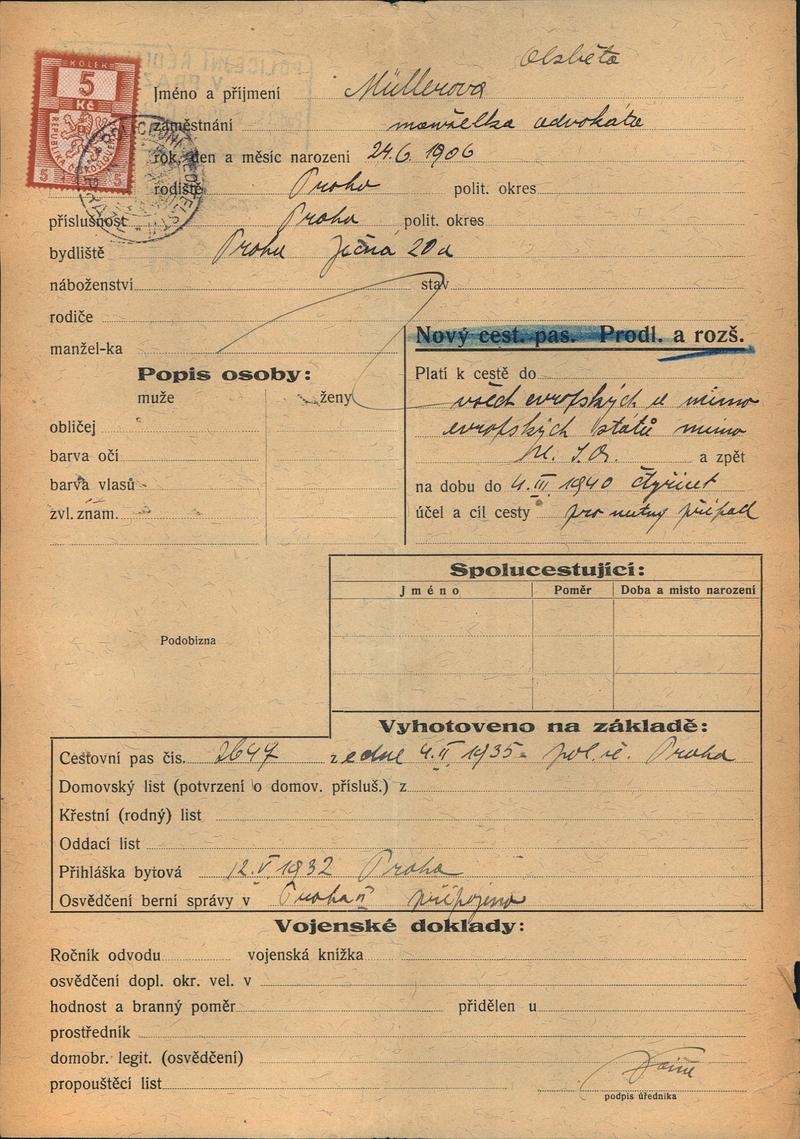 KOLEK
5
Kč
REPUBLIKA ČESKOSLOVENSKÁ
5 5
Olsběta
Jméno a příjmení Müllerova
zaměstnání manželka advokáta
rok, den a měsíc narození 24.6. 1906
rodiště Praha polit. okres
příslušnost Praha polit. okres
bydliště Praha Ječná 20a
náboženství stav
rodiče
manžel-ka
Nový cest. pas. Prodl. a rozš.
Popis osoby:
muže ženy
obličej
barva očí
barva vlasů
zvl. znam.
Platí k cestě do
všech evropských a mimo
evropských států mimo
a zpět
na dobu do 4. III. 1940 čtyřicet
účel a cíl cesty pro nutný případ
Spolucestující:
Jméno Poměr Doba a misto narození
Podobizna
Vyhotoveno na základě:
Cestovní pas čís. 2647 ze dne 4. II. 1935 pol. ř. Praha
Domovský list (potvrzení o domov. přísluš.) z
Křestní (rodný) list
Oddací list
Přihláška bytová 12. V. 1932 Praha
Osvědčení berní správy v Praha II připojeno
Vojenské doklady:
Ročník odvodu vojenská knížka
osvědčení dopl. okr. vel. v
hodnost a branný poměr přidělen u
prostředník
domobr. legit. (osvědčení)
propouštěcí list
podpis úředníka